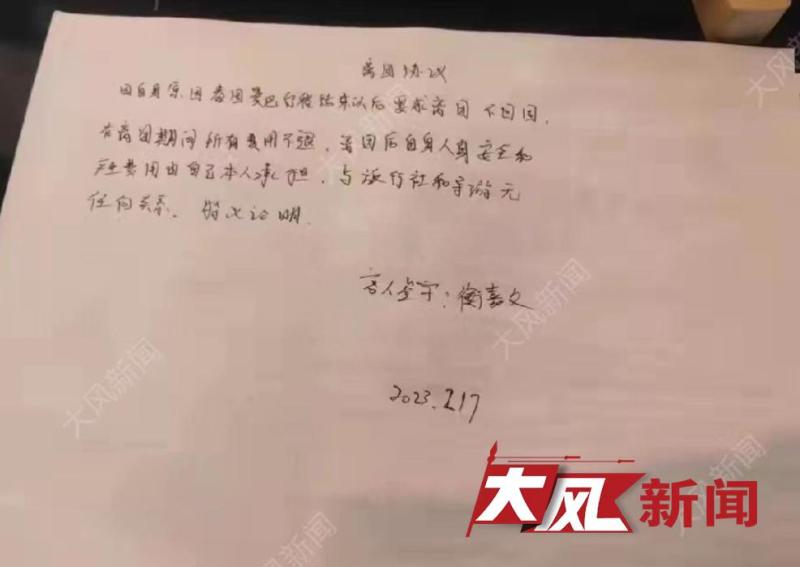 离团协议
因自身原因离团芭巴行程结束以后要求离团不回国。
在离团期间所有费用不退，离团后自身人身安全和
费用由自己本人承担，与旅行社和导游无
任何关系。特此证明。
客人签字：衡嘉文
2023.2.17
大风新闻
大风新闻
大风新闻
大风新闻
大风新闻